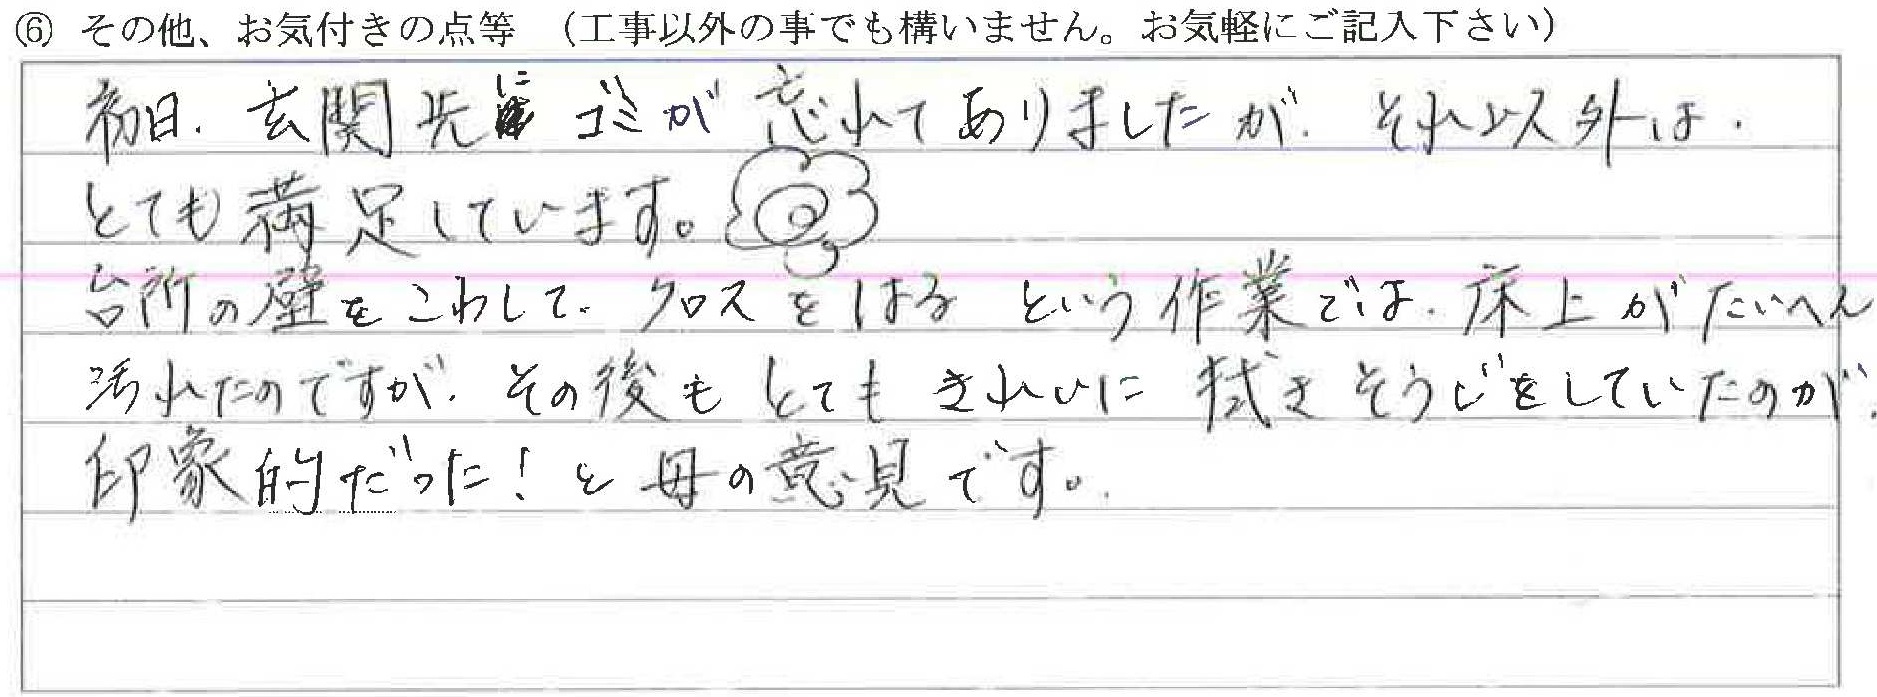 ⑥ その他、お気付きの点等 (工事以外の事でも構いません。お気軽にご記入下さい)
初日、玄関先にゴミが忘れてありましたが、それ以外は、
とても満足しています。
台所の壁をこわして、クロスをはるという作業では、床上がたいへん
汚れたのですが、その後もとてもきれいに拭きそうじをしていたのが、
印象的だった!と母の意見です。